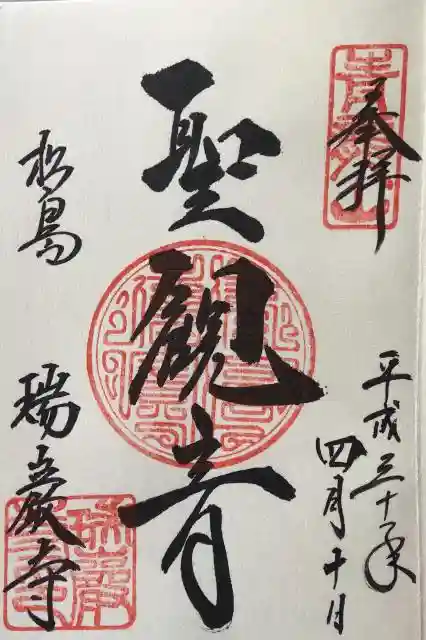 奉拝
平成三十年
四月十日
聖観音
松島
瑞巌寺